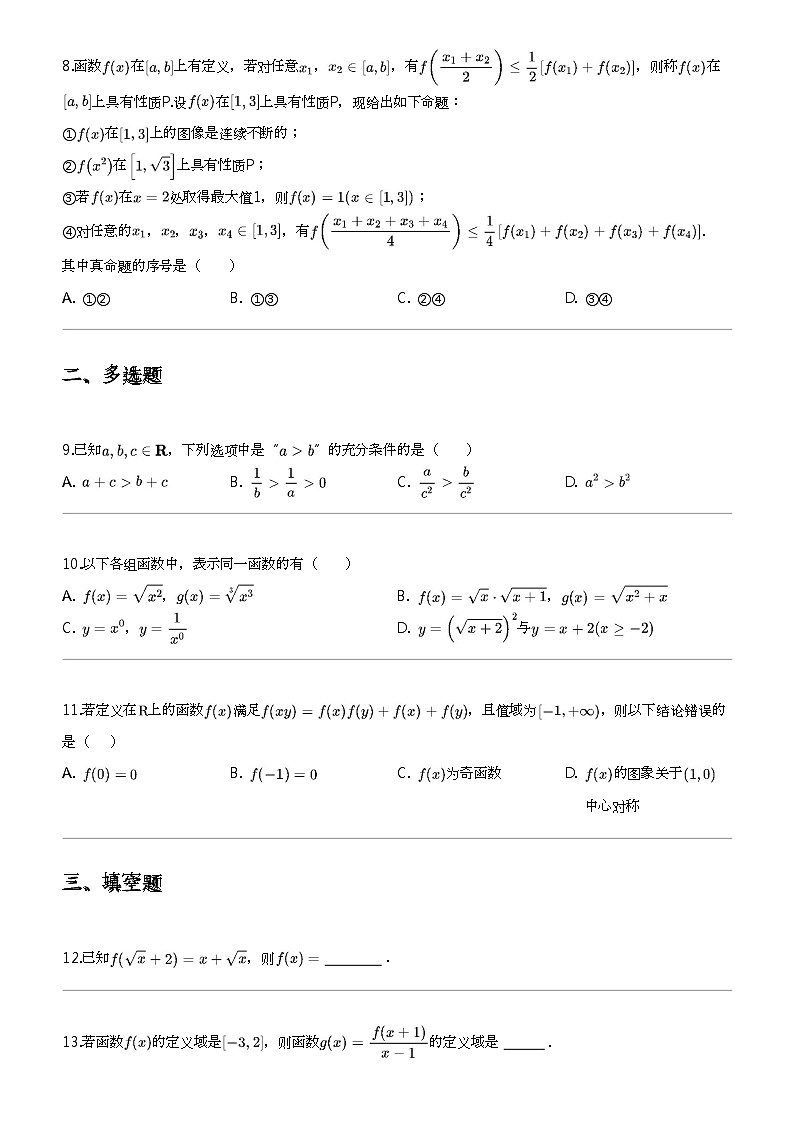 8.函数f(x)在[a, b]上有定义，若对任意x₁，x₂ ∈ [a, b]，有f((x₁ + x₂)/2) ≤ 1/2 [f(x₁) + f(x₂)]，则称f(x)在
[a, b]上具有性质P.设f(x)在[1, 3]上具有性质P，现给出如下命题：
①f(x)在[1, 3]上的图像是连续不断的；
②f(x²)在[1, √3]上具有性质P；
③若f(x)在x = 2处取得最大值1，则f(x) = 1(x ∈ [1, 3])；
④对任意的x₁，x₂，x₃，x₄ ∈ [1, 3]，有f((x₁ + x₂ + x₃ + x₄)/4) ≤ 1/4 [f(x₁) + f(x₂) + f(x₃) + f(x₄)].
其中真命题的序号是（　　）
A. ①② B. ①③ C. ②④ D. ③④
二、多选题
9.已知a, b, c ∈ R，下列选项中是“a > b”的充分条件的是（　　）
A. a + c > b + c B. 1/b > 1/a > 0 C. a/c² > b/c² D. a² > b²
10.以下各组函数中，表示同一函数的有（　　）
A. f(x) = √(x²)，g(x) = ∛(x³) B. f(x) = √x · √(x + 1)，g(x) = √(x² + x)
C. y = x⁰，y = 1/x⁰ D. y = (√(x + 2))²与y = x + 2(x ≥ −2)
11.若定义在R上的函数f(x)满足f(xy) = f(x)f(y) + f(x) + f(y)，且值域为[−1, +∞)，则以下结论错误的
是（　）
A. f(0) = 0 B. f(−1) = 0 C. f(x)为奇函数 D. f(x)的图象关于(1, 0)
中心对称
三、填空题
12.已知f(√x + 2) = x + √x，则f(x) = ________ .
13.若函数f(x)的定义域是[−3, 2]，则函数g(x) = f(x + 1)/(x − 1)的定义域是 ______ .